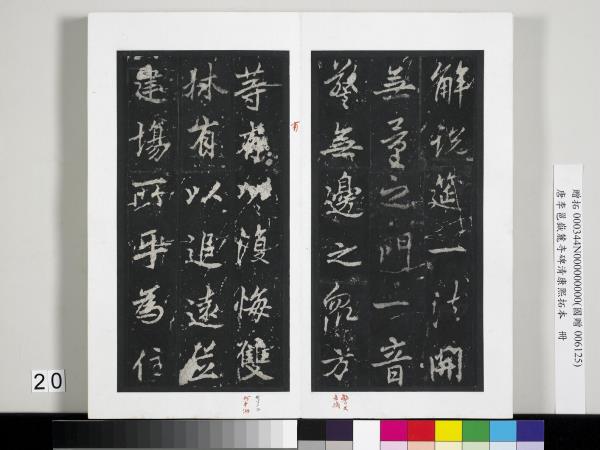 解說筵一法開
無量之門一音
警無邊之眾方
等有以復悔雙
林有以追遠並
建場所為住
贈拓 000344N000000000(國贈 006125)
唐李邕嶽麓寺碑清康熙拓本 冊
20